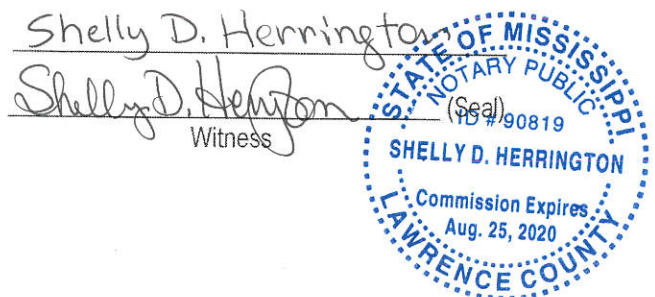 Shelly D. Herrington
Shelly D. Herrington
(Seal)
Witness
STATE OF MISSISSIPPI
NOTARY PUBLIC
ID # 90819
SHELLY D. HERRINGTON
Commission Expires
Aug. 25, 2020
LAWRENCE COUNTY